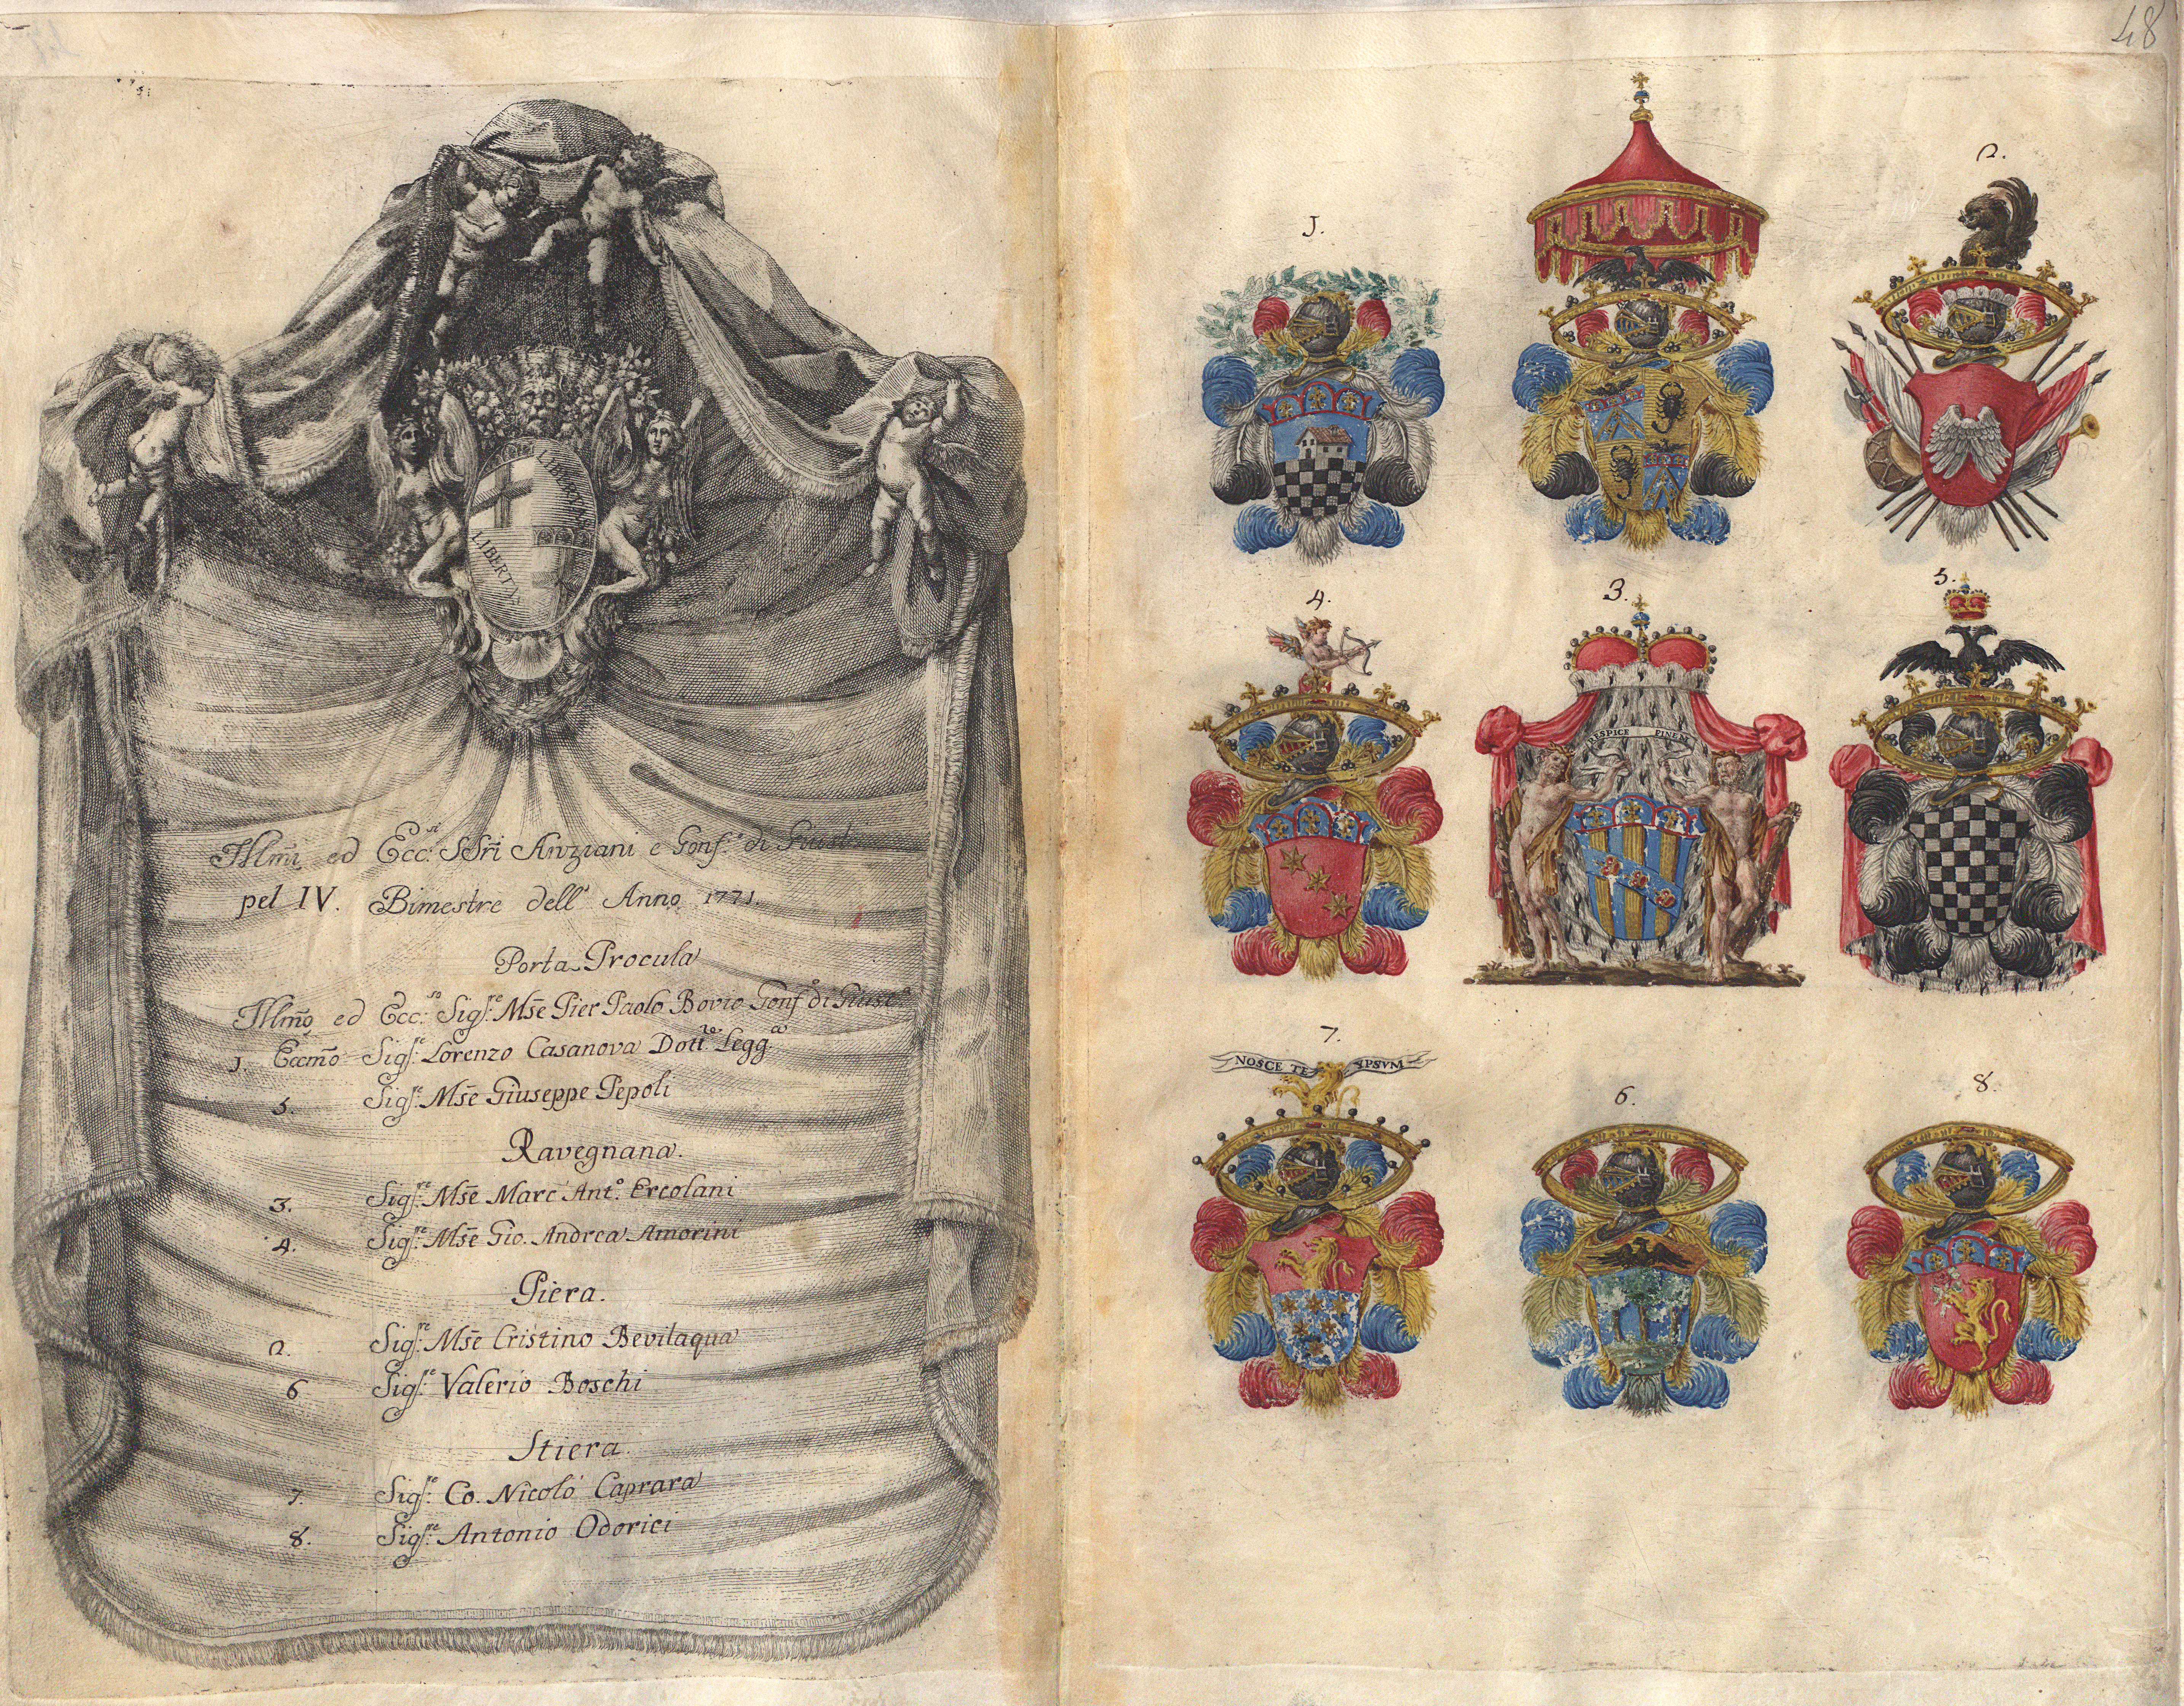 48
LIBERTAS
LIBERTAS
Illmi ed Ecc.si SSri Anziani e Gonf.e di Giust
pel IV. Bimestre dell' Anno 1771.
Porta Procula
Illmo ed Ecc.so Sig.re Mse Pier Paolo Bovio Gonf.e di Giust.a
1. Eccmo Sig.re Lorenzo Casanova Dott.re Legg.
5. Sig.re Mse Giuseppe Pepoli
Ravegnana.
3. Sig.re Mse Marc' Ant.o Ercolani
4. Sig.re Mse Gio. Andrea Amorini
Piera.
2. Sig.re Mse Cristino Bevilaqua
6 Sig.re Valerio Boschi
Stiera
7. Sig.re Co. Nicolò Caprara
8. Sig.re Antonio Odorici
1.
2.
4.
3.
5.
RESPICE FINEM
7.
NOSCE TE IPSVM
6.
8.